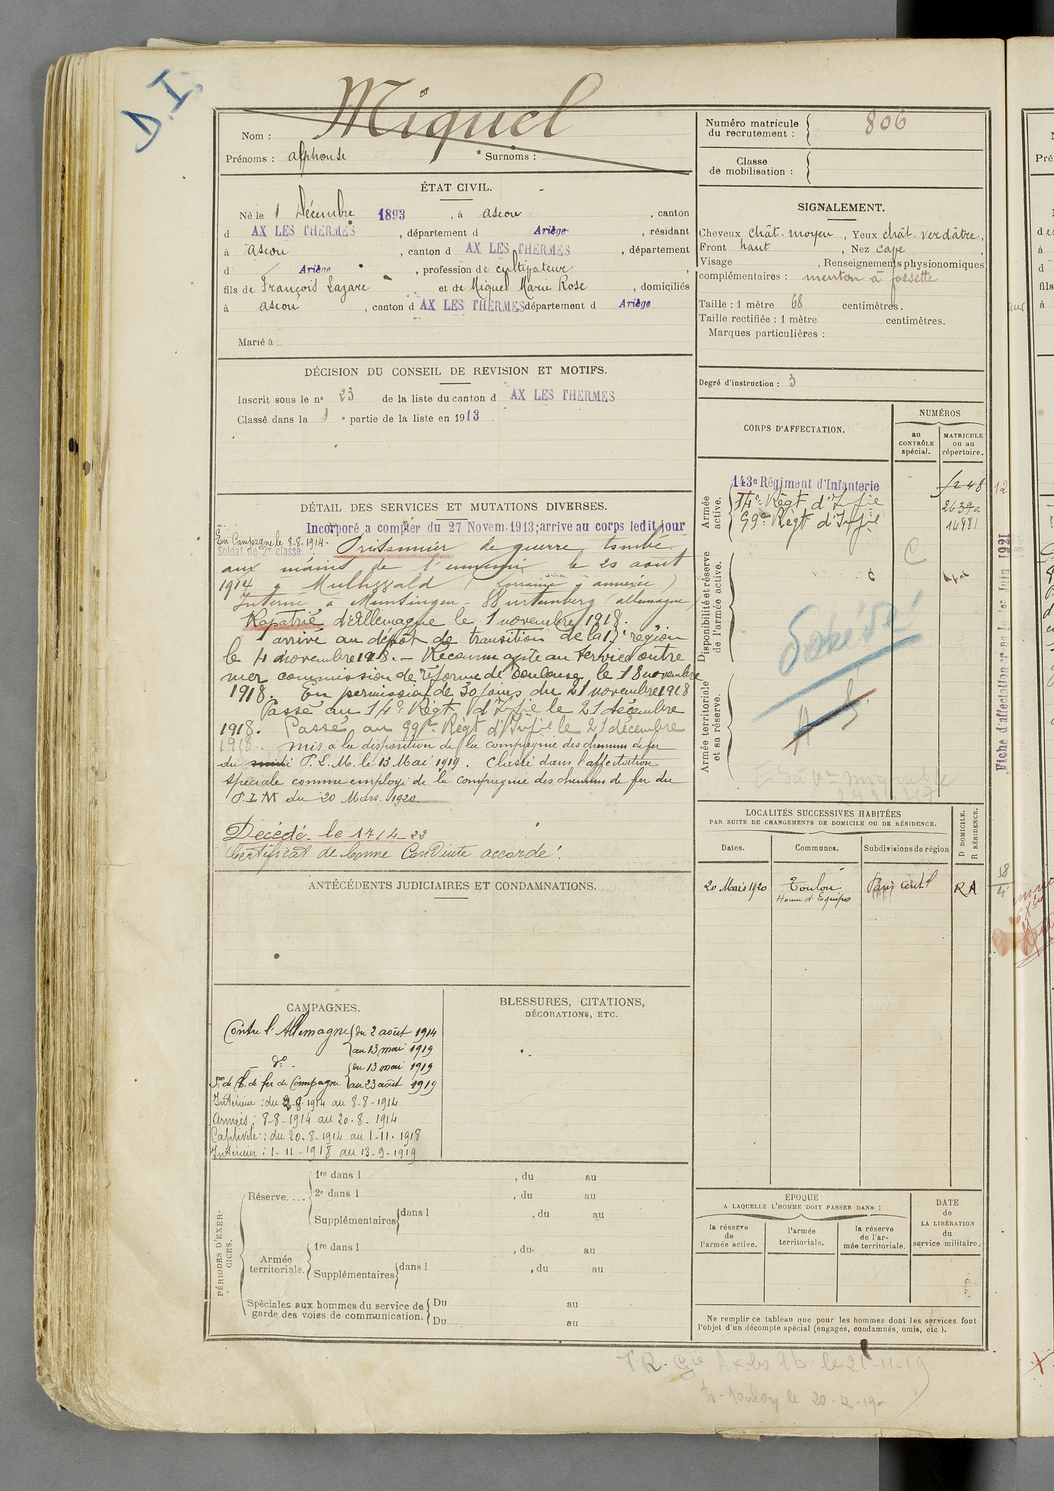 D.I.
Nom : Miquel
Prénoms : alphonse Surnoms :
ÉTAT CIVIL.
Né le 1 Décembre 1893, à ascou, canton
d AX LES THERMES, département d Ariège, résidant
à ascou, canton d AX LES THERMES, département
d Ariège, profession de cultivateur
fils de François Lazare et de Miquel Marie Rose, domiciliés
à ascou, canton d AX LES THERMES département d Ariège
Marié à
DÉCISION DU CONSEIL DE REVISION ET MOTIFS.
Inscrit sous le n° 23 de la liste du canton d AX LES THERMES
Classé dans la 1e partie de la liste en 1913
DÉTAIL DES SERVICES ET MUTATIONS DIVERSES.
Incorporé a compter du 27 Novem. 1913; arrive au corps ledit jour
En Campagne le 8.8.1914.
Soldat de 2e classe
Prisonnier de guerre tombé
aux mains de l'ennemi le 20 aout
1914 à (Lorraine annexée)
Interné à Munsingen - Wurtemberg (allemagne)
Rapatrié d'Allemagne le 1 novembre 1918.
arrivé au dépôt de transition de la région
le 4 novembre 1918. - Reconnu apte au service
commission de réforme de Toulouse le 18 novembre
1918. En permission de 30 jours du 21 novembre 1918
Passé au 14e Régt d'Ifie le 21 décembre
1918. Passé au 99e Régt d'Infie le 21 décembre
1918. mis à la disposition de la compagnie des chemins de fer
du midi P.L.M. le 13 Mai 1919. Classé dans l'affectation
spéciale comme employé de la compagnie des chemins de fer du
P.L.M du 20 Mars 1920.
Décédé le 17-4-23
Certificat de bonne Conduite accordé.
ANTÉCÉDENTS JUDICIAIRES ET CONDAMNATIONS.
CAMPAGNES.
Contre l'Allemagne du 2 août 1914
au 13 mai 1919
do du 13 mai 1919
Son de Ch. de fer de Campagne au 23 août 1919
Intérieur : du 2-8-1914 au 8-8-1914
Armées : 8-8-1914 au 20-8-1914
Captivité : du 20-8-1914 au 1-11-1918
Intérieur : 1-11-1918 au 13-9-1919
BLESSURES, CITATIONS,
DÉCORATIONS, ETC.
PÉRIODES D'EXERCICES.
Réserve....
1re dans l , du au
2e dans l , du au
Supplémentaires dans l , du au
Armée territoriale.
1re dans l , du au
Supplémentaires dans l , du au
Spéciales aux hommes du service de garde des voies de communication.
Du au
Du au
Numéro matricule du recrutement : 806
Classe de mobilisation :
SIGNALEMENT.
Cheveux chât. moyen, Yeux chât. verdâtre,
Front haut, Nez cave,
Visage , Renseignements physionomiques
complémentaires : menton à fossette
Taille : 1 mètre 68 centimètres.
Taille rectifiée : 1 mètre centimètres.
Marques particulières :
Degré d'instruction : 3
CORPS D'AFFECTATION.
NUMÉROS
au CONTRÔLE spécial.
MATRICULE ou au répertoire.
Armée active.
143e Régiment d'Infanterie
14e Régt d'Ifie
99e Régt d'Infie
14981
Disponibilité et réserve de l'armée active.
Décédé
Armée territoriale et sa réserve.
LOCALITÉS SUCCESSIVES HABITÉES
PAR SUITE DE CHANGEMENTS DE DOMICILE OU DE RÉSIDENCE.
Dates. Communes. Subdivisions de région D DOMICILE. R RÉSIDENCE.
20 Mars 1920 Toulon RA
Homme d'Equipe
EPOQUE
A LAQUELLE L'HOMME DOIT PASSER DANS :
la réserve de l'armée active.
l'armée territoriale.
la réserve de l'armée territoriale.
DATE de LA LIBÉRATION du service militaire.
Ne remplir ce tableau que pour les hommes dont les services font
l'objet d'un décompte spécial (engagés, condamnés, omis, etc.).
le 21-11-19
Toulon le 20-12-19